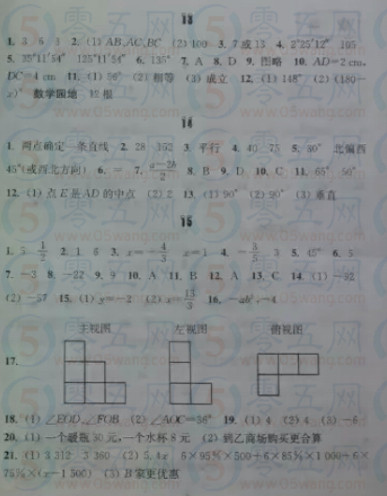 13
1. 3 6 3 2. (1) AB,AC,BC (2) 100 3. 7或13 4. 2°25′12″ 105
5. 35°11′54″ 125°11′54″ 6. 135° 7. A 8. D 9. 图略 10. AD=2 cm,
DC=4 cm 11. (1) 56° (2) 相等 (3) 成立 12. (1) 148° (2) (180-
x)° 数学园地 12根
14
1. 两点确定一条直线 2. 28 152 3. 平行 4. 40 75 5. 40° 北偏西
45°(或西北方向) 6. = 7. 8. B 9. D 10. C 11. 65° 50°
12. (1) 点E是AD的中点 (2) 2 13. (1) 90° (2) 90° (3) 垂直
15
1. 5 1/2 2. 1 6 3. x=-4/3 x=1 4. -3/5 3 5. 45° 6. 5
7. -3 8. -22 9. 9 10. A 11. B 12. A 13. C 14. (1) -92
(2) -57 15. (1) y=-2 (2) x=13/3 16. -4
主视图 左视图 俯视图
17.
18. (1) ∠EOD,∠FOB (2) ∠AOC=36° 19. (1) 4 (2) 4 (3) -6
20. (1) 一个暖瓶30元,一个水杯8元 (2) 到乙商场购买更合算
21. (1) 3 312 3 360 (2) 5.4x 6×95%×500+6×85%×1 000+6×
75%×(x-1 500) (3) B家更优惠